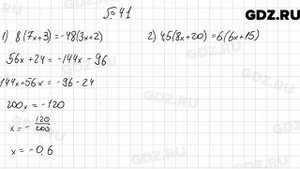 № 41
GDZ.RU
1) 8(7x+3)=-48(3x+2)
2) 45(8x+20)=6(6x+15)
56x+24=-144x-96
144x+56x=-96-24
200x=-120
x=-120/200
x=-0,6
GDZ.RU